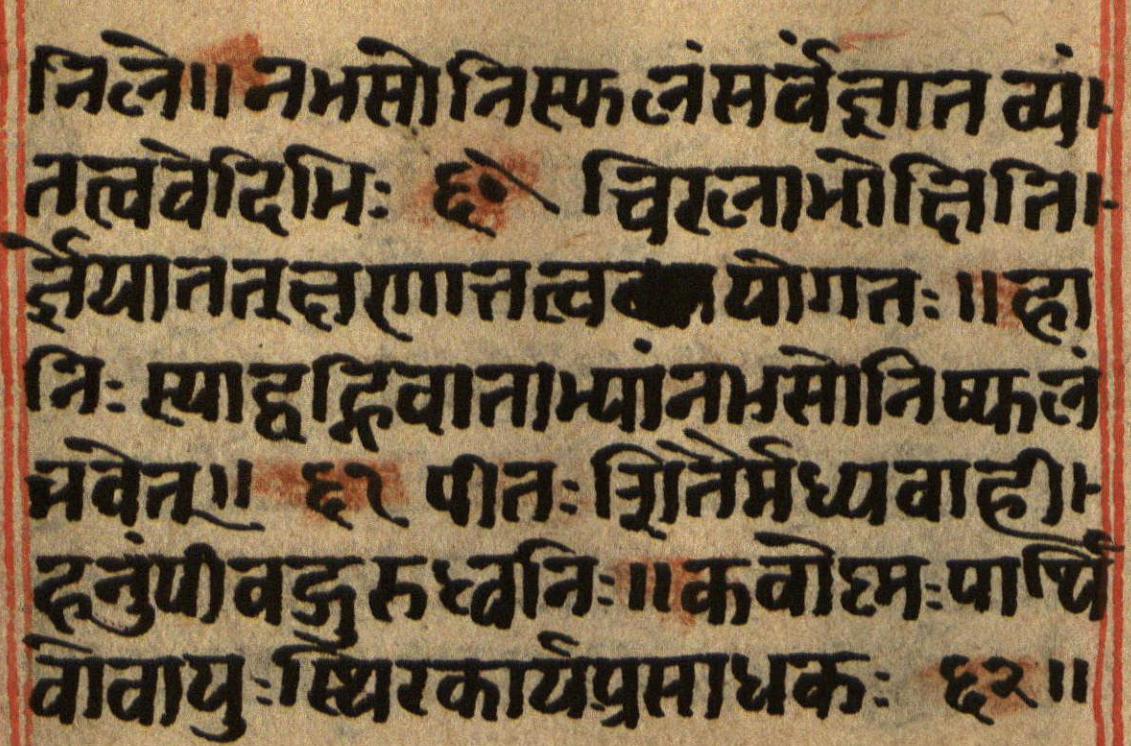 निले॥ नभसो निस्फलं सर्वं ज्ञातव्यं।
तत्ववेदिभिः ६० चिरलाभो क्षिति।
र्ज्ञेया तत्क्षणात्तत्व योगतः॥ हा
निः स्याद्वह्निवाताभ्यां नभसो निष्फलं
भवेत्॥ ६१ पीतः शितैर्मध्यवाही।
हनुं पीवद्गुरुध्वनिः॥ कवोष्मः पार्थि
वो वायुः स्थिरकार्यप्रसाधकः ६२॥